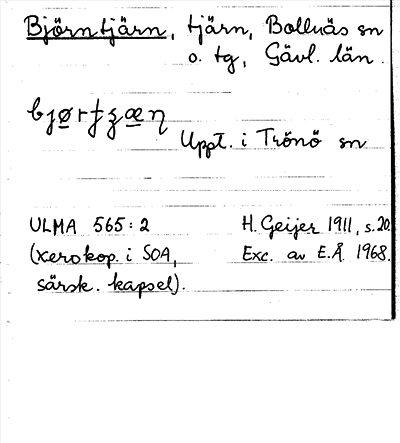 Björntjärn, tjärn, Bollnäs sn
o. tg, Gävl. län.
Uppt. i Trönö sn
ULMA 565:2 H. Geijer 1911, s. 20.
(xerokop. i SOA, Exc. av E.Å. 1968.
särsk. kapsel).